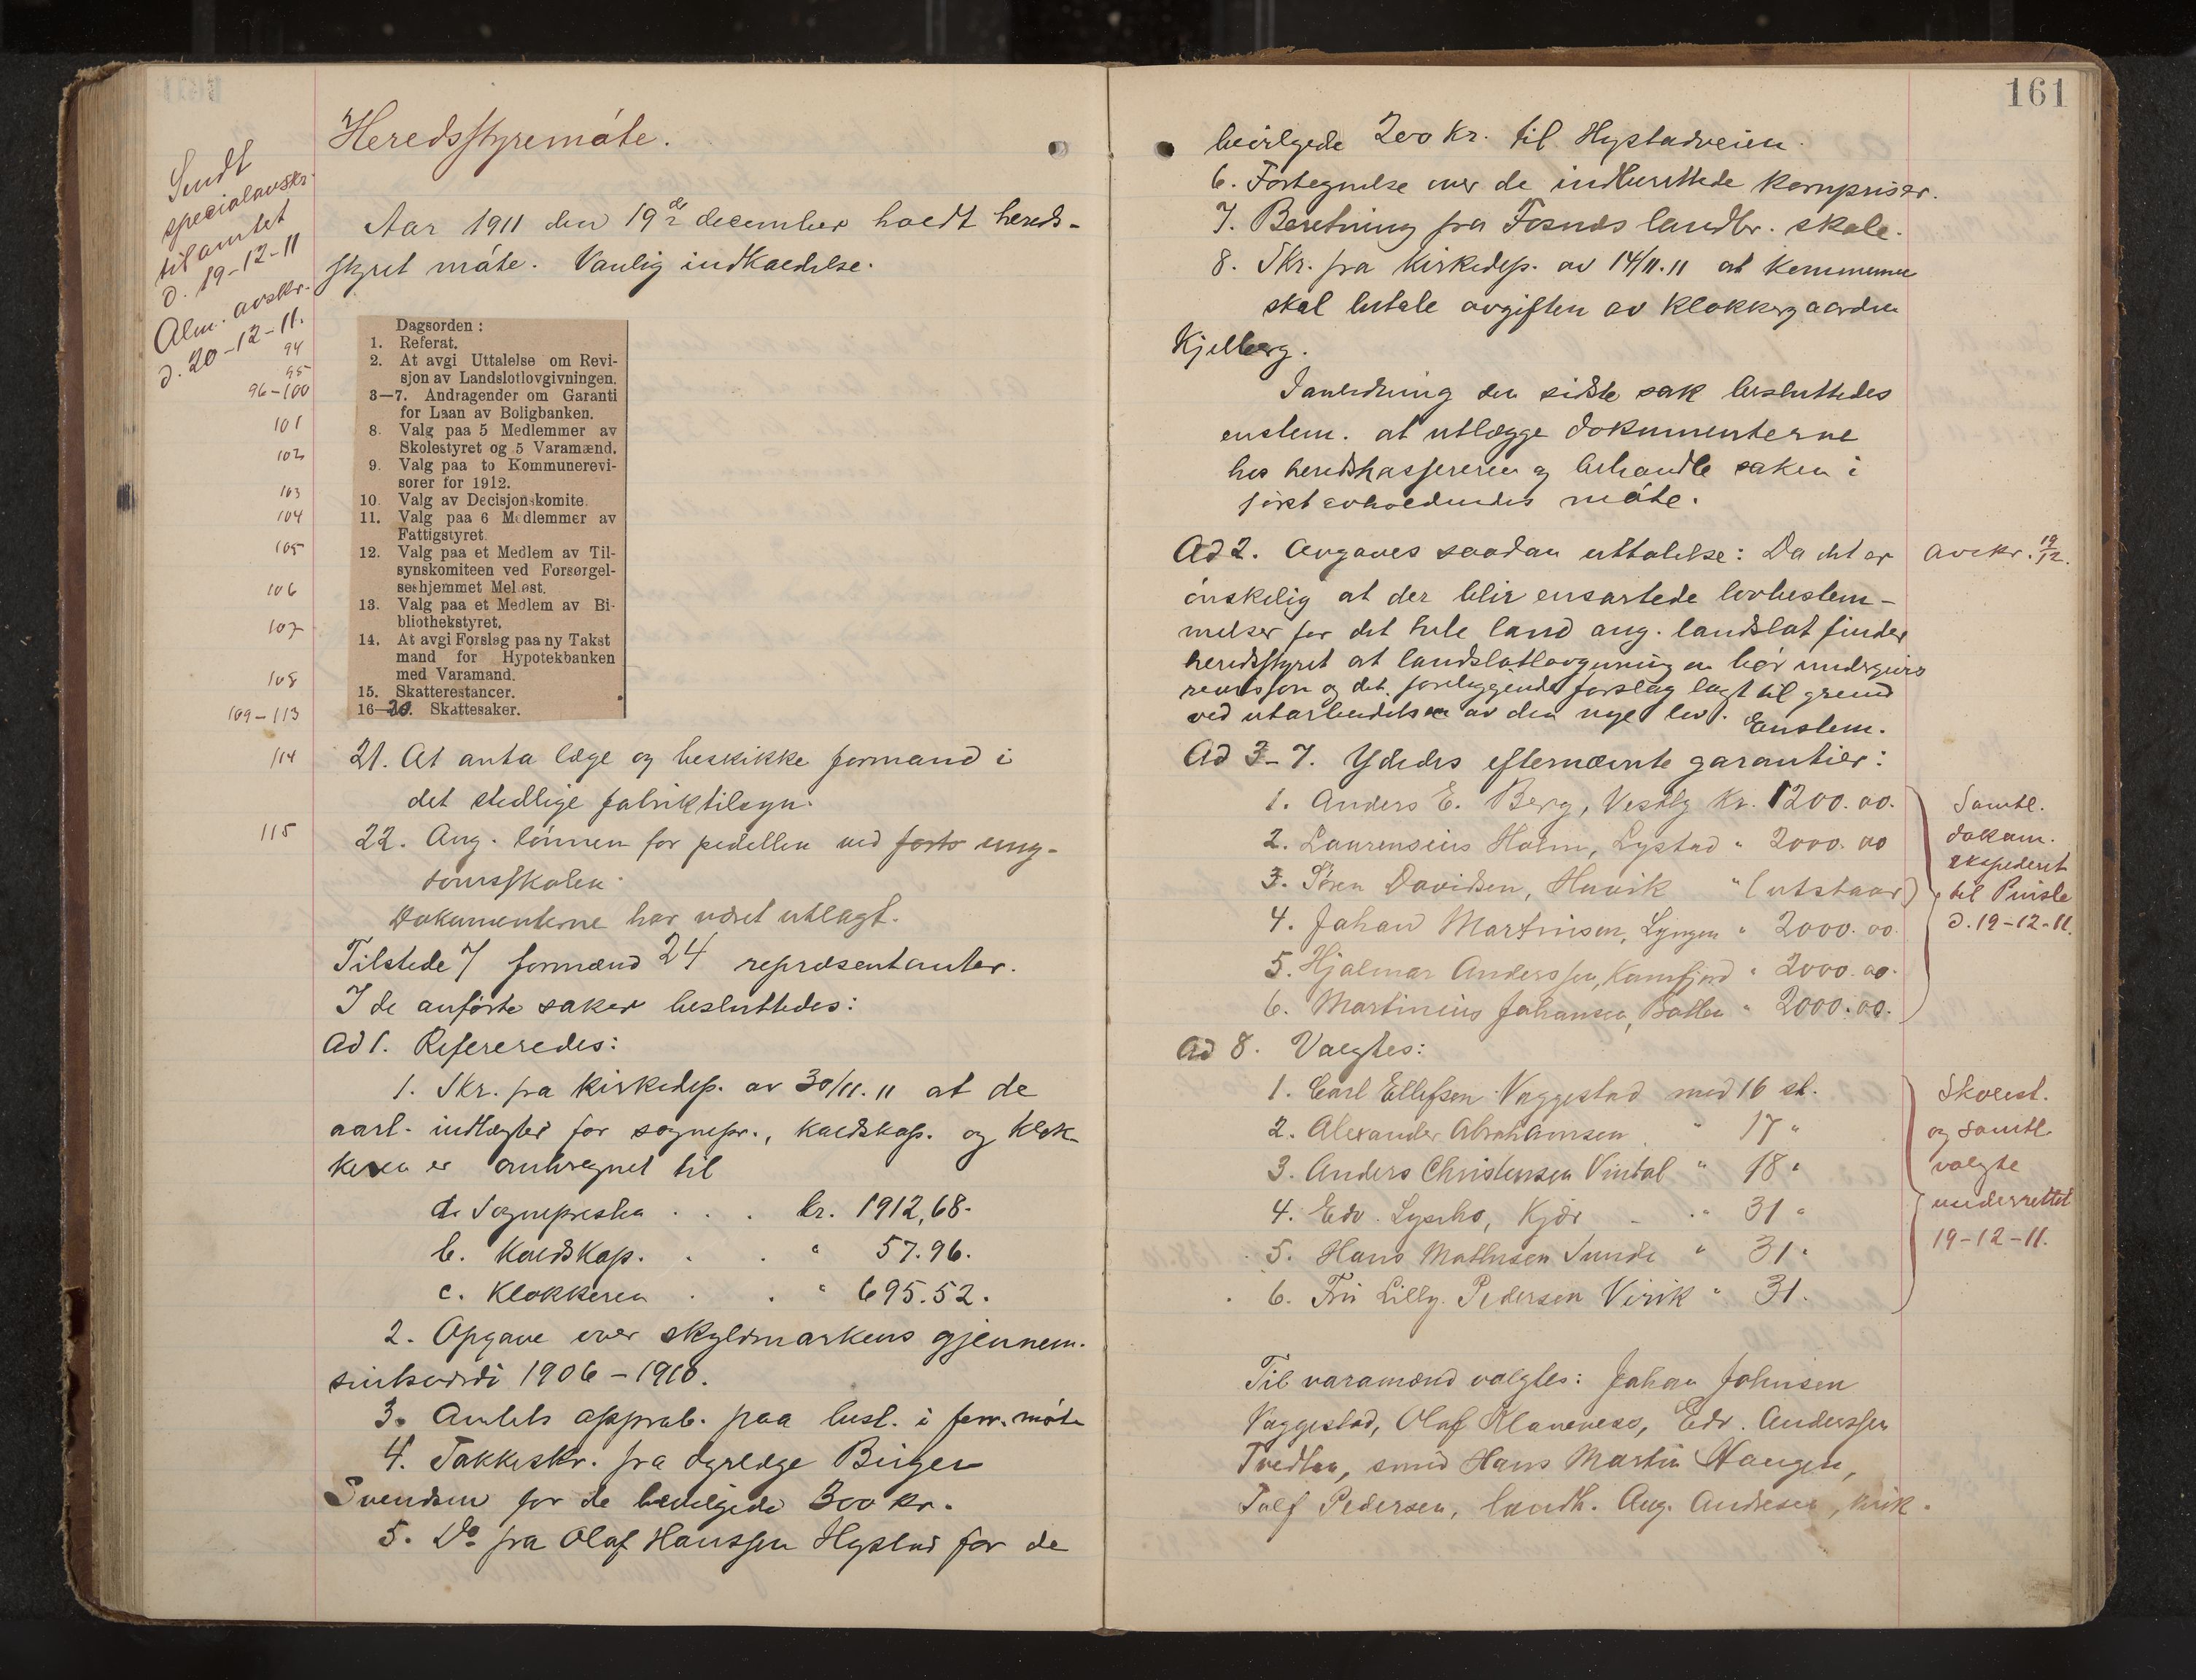 Heredsstyremøte.
Sendt
specialavskr.
til amtet
d. 19-12-11
Alm. avskr.
d. 20-12-11.
Aar 1911 den 19de december holdt hereds-
styret møte. Vanlig indkaldelse.
Dagsorden:
94
1. Referat.
95
2. At avgi Uttalelse om Revi-
sjon av Landslotlovgivningen.
96-100
3—7. Andragender om Garanti
for Laan av Boligbanken.
101
8. Valg paa 5 Medlemmer av
Skolestyret og 5 Varamænd.
102
9. Valg paa to Kommunerevi-
sorer for 1912.
103
10. Valg av Decisjonskomite.
104
11. Valg paa 6 Medlemmer av
Fattigstyret.
105
12. Valg paa et Medlem av Til-
synskomiteen ved Forsørgel-
seshjemmet Meløst.
106
13. Valg paa et Medlem av Bi-
bliothekstyret.
107
14. At avgi Forslag paa ny Takst
mand for Hypotekbanken
med Varamand.
108
15. Skatterestancer.
109-113
16—20. Skattesaker.
114
21. At anta læge og beskikke formand i
det stedlige fabriktilsyn.
115
22. Ang. lønnen for pedellen ved forts ung-
domsskolen.
Dokumenterne har været utlagt.
Tilstede 7 formænd 24 repræsentanter.
I de anførte saker besluttedes:
Ad 1. Refereredes:
1. Skr. fra kirkedep. av 30/11. 11 at de
aarl. indtægter for sognepr., kaldskap. og klok-
keren er omberegnet til
a. Sognepresten . . . kr. 1912,68.
b. Kaldskap. . . " 57.96.
c. Klokkeren . . " 695.52.
2. Opgave over skyldmarkens gjennem-
snitsverdi 1906-1910.
3. Amtets approb. paa besl. i forr. møte
4. Takkeskr. fra dyrlæge Birger
Svendsen for de bevilgede 300 kr.
5. Do fra Olaf Hanssen Hystad for de
161
bevilgede 200 kr. til Hystadveien.
6. Fortegnelse over de indberettede kornpriser.
7. Beretning fra Fosnes landbr. skole.
8. Skr. fra kirkedep. av 14/11. 11 at kommunen
skal betale avgiften av klokkergaarden
Kjelberg.
I anledning den sidste sak besluttedes
enstem. at utlægge dokumenterne
hos heredskassereren og behandle saken i
først avholdendes møte.
Ad 2. Avgaves saadan uttalelse: Da det er
avskr. 19/12.
ønskelig at der blir ensartede lovbestem-
melser for det hele land ang. landslot finder
heredsstyret at landslotlovgivningen bør undergives
revisjon og det foreliggende forslag lagt til grund
ved utarbeidelsen av den nye lov. Enstem.
Ad 3-7. Ydedes efternævnte garantier:
1. Anders E. Berg, Vestby Kr. 1200.00.
2. Laurensius Holm, Lystad " 2000.00
3. Søren Davidsen, Huvik " (utstaar)
4. Johan Martinsen, Lyngen " 2000.00.
5. Hjalmar Anderssen, Kamfjord " 2000.00.
6. Martinius Johansen, " 2000.00.
Samtl.
dokum.
ekspederet
til
d. 19-12-11.
Ad 8. Valgtes:
1. Carl Ellefsen Vaggestad med 16 st.
2. Alexander Abrahamsen " 17 "
3. Anders Christensen Vindal " 18 "
4. Edv. Lysebo, Kjær " 31 "
5. Hans Mathisen Sunde " 31 "
6. Fru Lilly Pedersen Virik " 31.
Skolest.
og samtl.
valgte
underrettet
19-12-11.
Til varamænd valgtes: Johan Johnsen
Vaggestad, Olaf Klaveness, Edv. Anderssen
smed Hans Martin Haugen,
Pedersen, landh. Aug. Andresen, Virik.